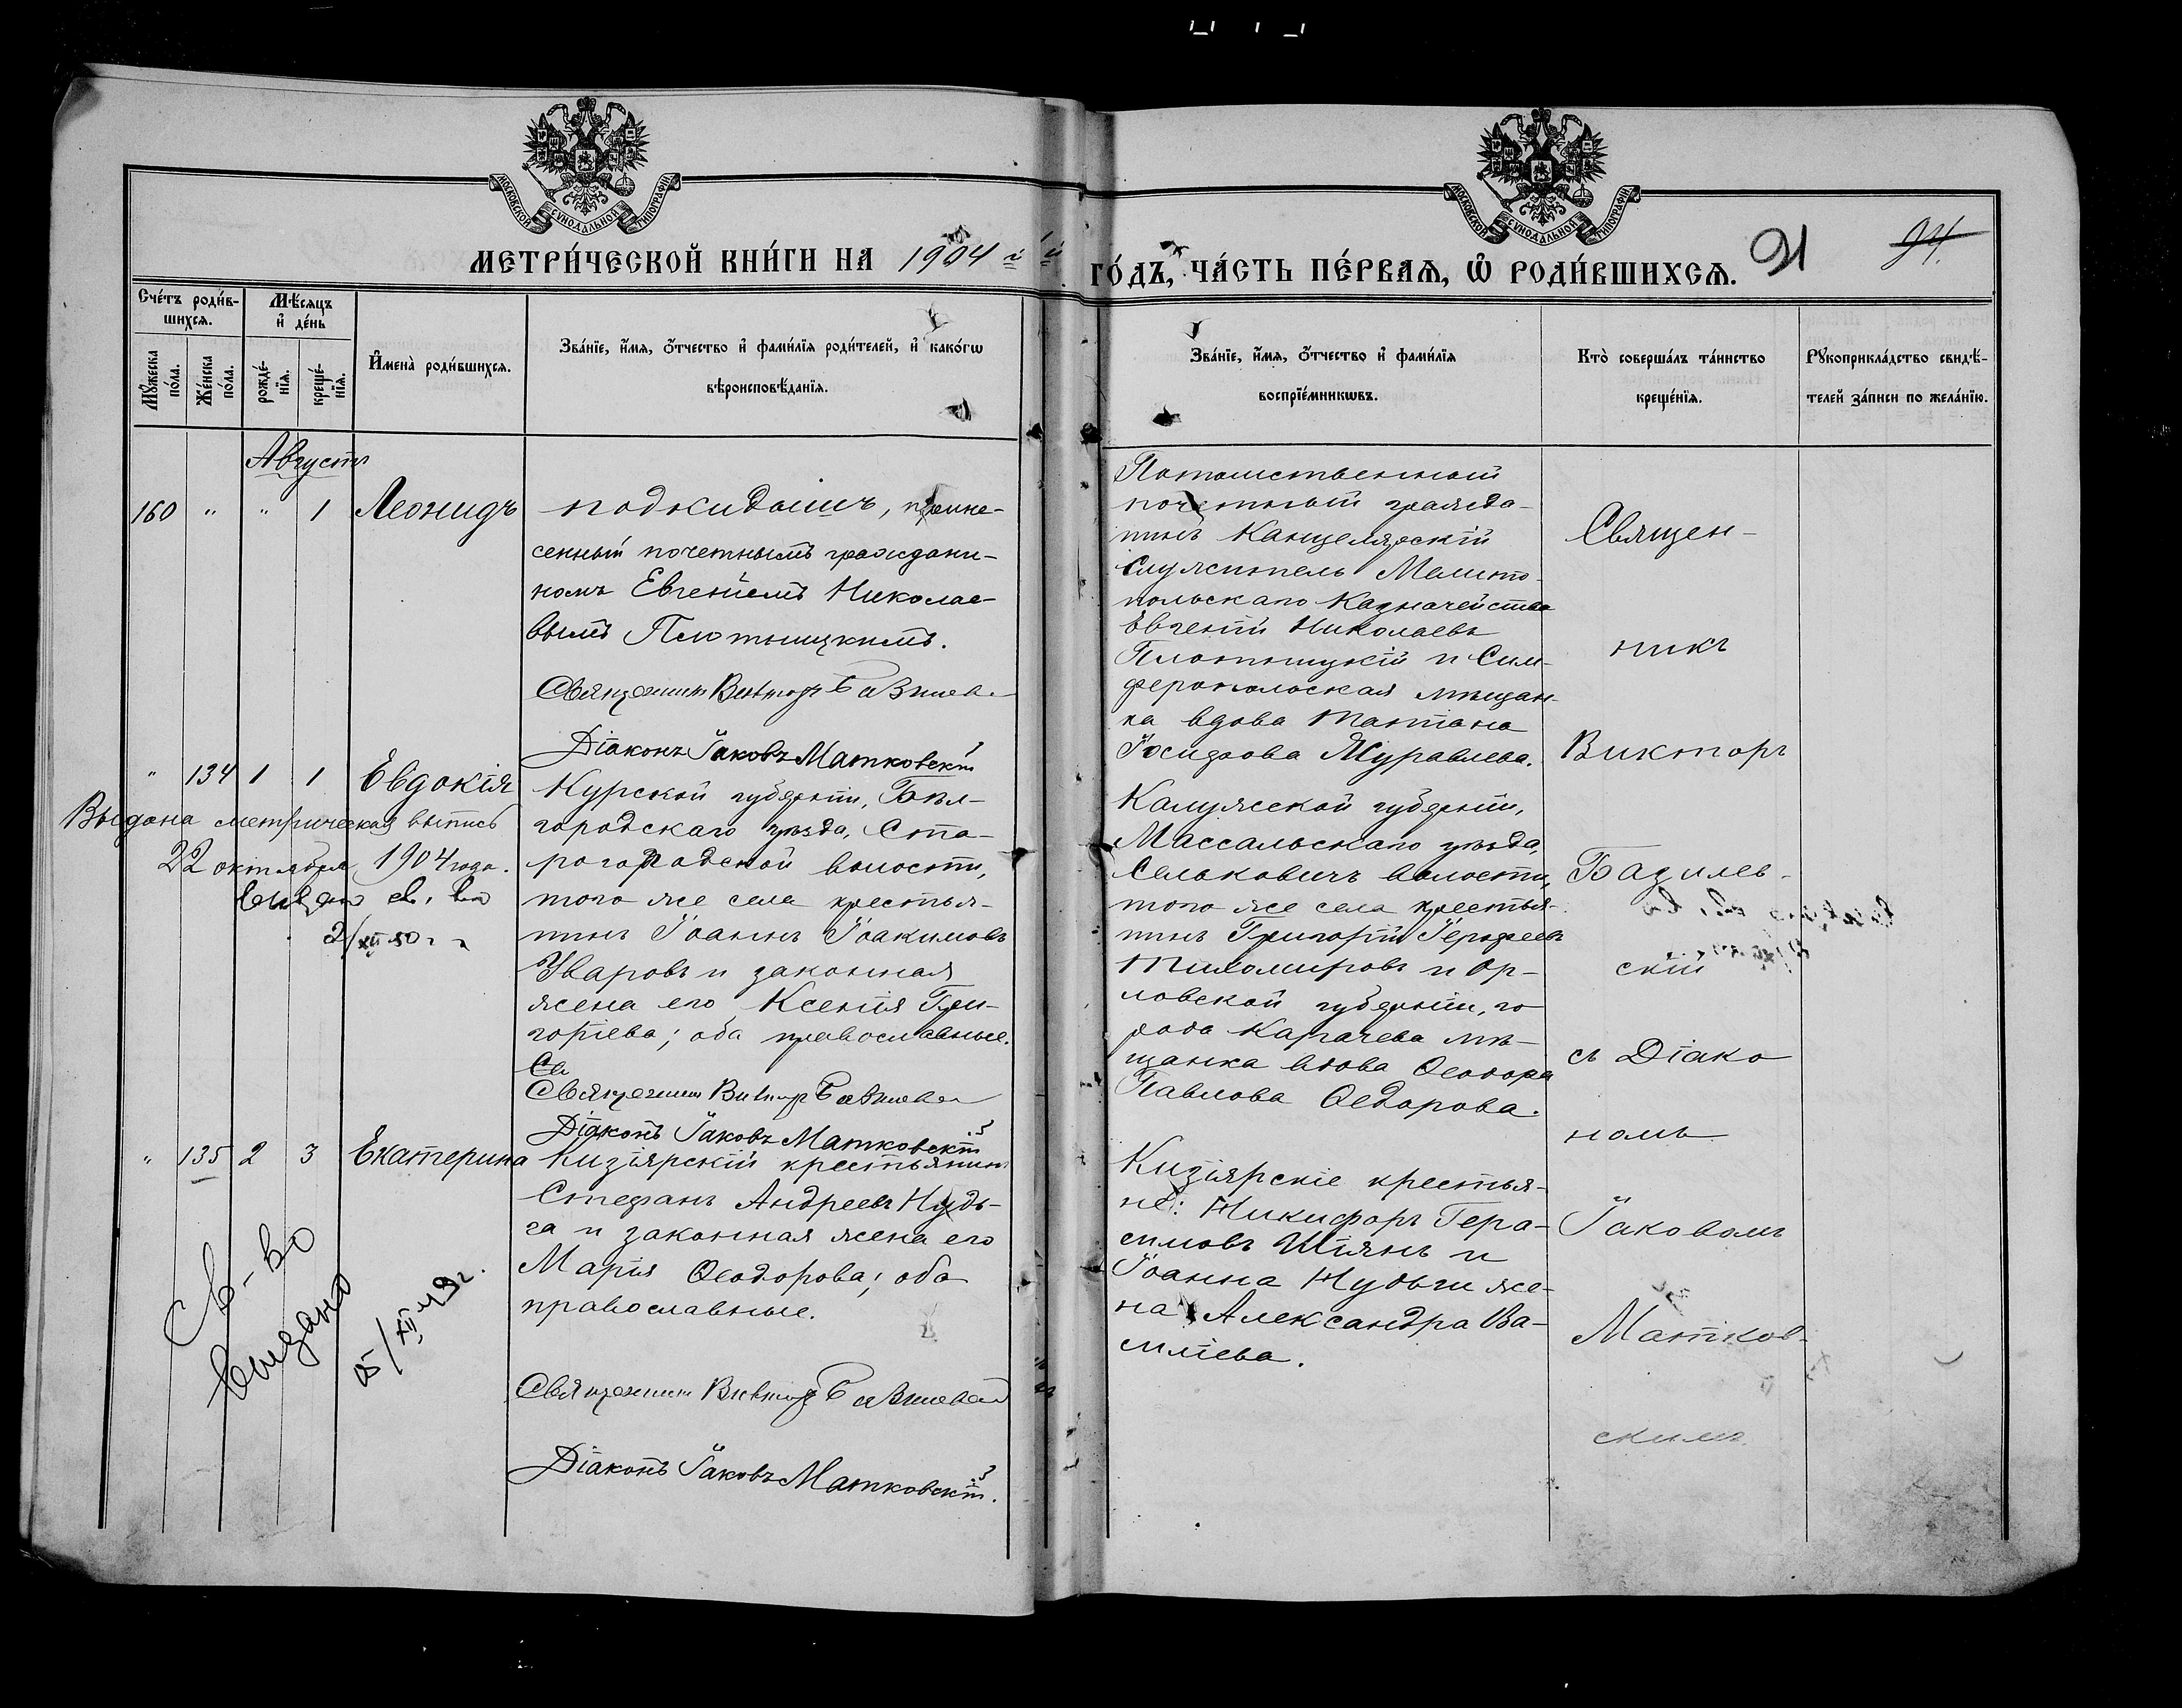 МОСКОВСКОЙ СѴНОДАЛЬНОЙ ТИПОГРАФІИ
МОСКОВСКОЙ СѴНОДАЛЬНОЙ ТИПОГРАФІИ
МЕТРИ́ЧЕСКОЙ КНИ́ГИ НА 1904 й
ГО́ДЪ, ЧА́СТЬ ПЕ́РВАѦ, Ѽ РОДИ́ВШИХСѦ.
91
94.
Сче́тъ роди́в-
шихсѧ.
Мꙋ́жеска по́ла.
Же́нска по́ла.
Мѣ́сѧцъ
и҆ де́нь
рожде́-нїѧ.
креще́-нїѧ.
И҆мена̀ роди́вшихсѧ.
Зва́нїе, и҆́мѧ, ѻ҆́тчество и҆ фами́лїѧ роди́телей, и҆ како́гѡ
вѣроисповѣ́данїѧ.
Зва́нїе, и҆́мѧ, ѻ҆́тчество и҆ фами́лїѧ
воспрїе́мникѡвъ.
Кто̀ соверша́лъ та́инство
креще́нїѧ.
Рꙋкоприкла́дство свидѣ́-
телей за́писи по жела́нїю.
Августъ
160 " " 1 Леонидъ
подкидышъ, прине-
сенный почетнымъ граждани-
номъ Евгеніемъ Николае-
вымъ Плотницкимъ.
Священникъ Викторъ Базилев
Діаконъ Іаковъ Матковскій
Потомственный
почетный гражда-
нинъ Канцелярскій
Служитель Мелито-
польскаго Казначейства
Евгеній Николаевъ
Плотницкій и Сим-
феропольская мѣщан-
ка вдова Татіана
Іосифова Журавлева.
" 134 1 1 Евдокія
Выдана метрическая выпись
22 октября 1904 года.
Выдано св. во
2/XII 50 г
Курской губерніи, Бѣл-
городскаго уѣзда, Ста-
рогородской волости,
того же села крестья-
нинъ Іоаннъ Іоакимовъ
Уваровъ и законная
жена его Ксенія Гри-
горіева; оба православные.
Св
Священникъ Викторъ Базилев
Діаконъ Іаковъ Матковскій
Калужской губерніи,
Массальскаго уѣзда,
Сельковичъ волости,
того же села крестья-
нинъ Григорій Іерофеевъ
Тихомировъ и Ор-
ловской губерніи, го
рода Карачева мѣ-
щанка вдова Ѳеодора
Павлова Ѳедорова.
" 135 2 3 Екатерина
Св-во
выдано
15/XII 49 г.
Кизіярскій крестьянинъ
Стефанъ Андреевъ Нудь-
га и законная жена его
Марія Ѳеодорова; оба
православные.
Священникъ Викторъ Базилев
Діаконъ Іаковъ Матковскій.
Кизіярскіе крестья-
не: Никифоръ Гера-
симовъ Шіянъ и
Іоанна Нудьги же-
на Александра Ва-
силіева.
Священ-
никъ
Викторъ
Базилев-
скій
съ Діако
номъ
Іаковомъ
Матков-
скимъ.